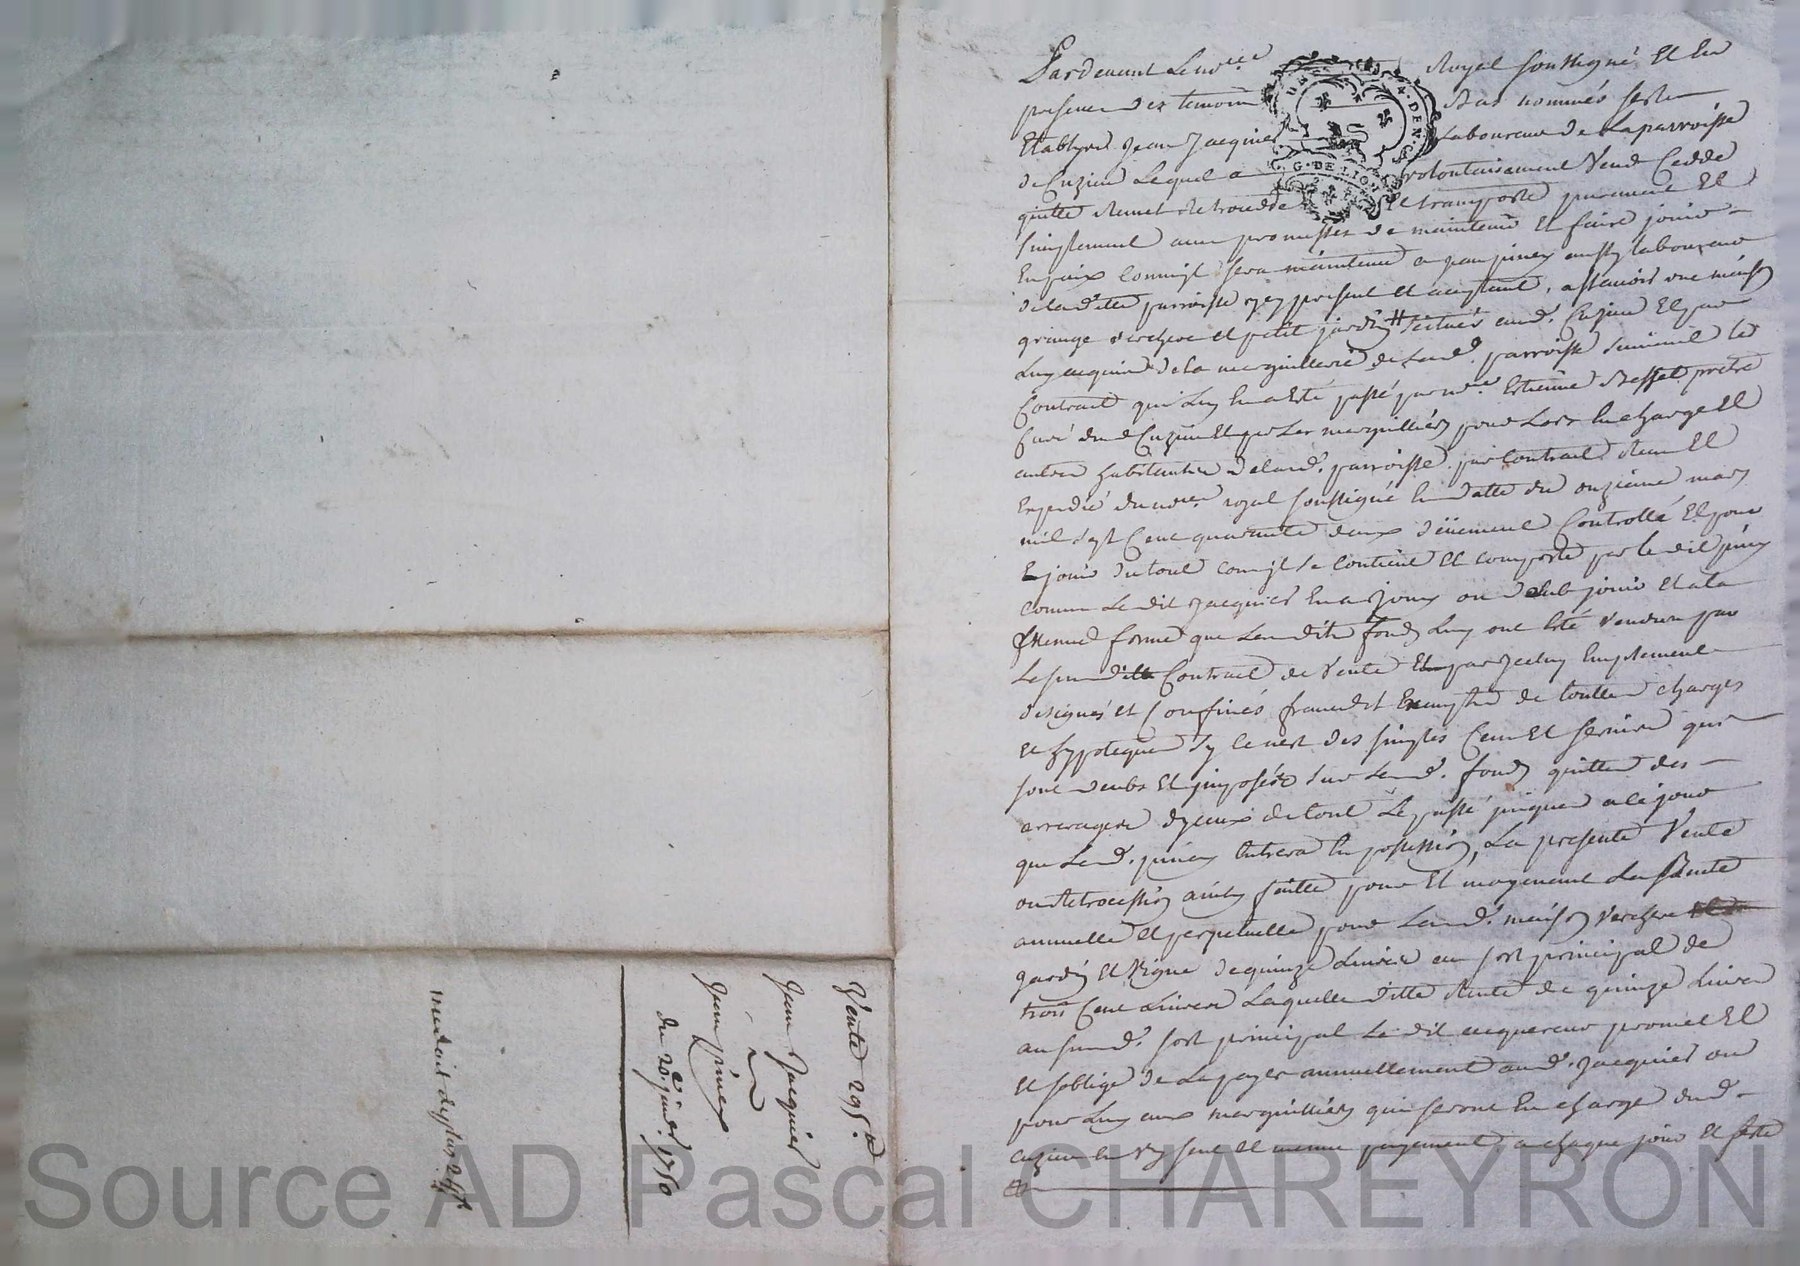 Pardevant le no.re Royal soussigné Et En
presence des temoins Bas nommés sest
Etablyd Jean Jacquier Laboureur de La parroisse
de Cuzieu Lequel a volontairement Vend Cedde
quitte Remet Retrocedde Et transporte purement Et
simplement avec promesses de maintenir Et faire jouir
En paix comm'jl sera maintenu a jean pinex aussy laboureur
de laditte parroisse jcy present Et acceptant, assavoir une maison
grange verchere et petit jardin # scitués aud. Cuzieu Et par
Luy acquis de la marguillerie de Lad. parroisse suivant le
Contract qui Luy En a Esté passé par m.re Estienne Besset pretre
Curé dud Cuzieu Et par Les marguilliers pour Lors En charge Et
autres habitants de lad. parroisse par Contract Receu Et
Expedié du no.re royal soussigné En datte du onzieme mars
mil sept Cent quarante deux düement Controllé Et pour
En jouir du tout comm'jl se contient Et comporte par le dit pinex
comme Le dit jacquier En a jouy ou deub jouir Et a la
forme que Lesdits fonds Luy ont Esté vendus par
Le susdit Contract de Vente Et par jceluy Emplement
designés et Confinés francs et Exempts de touttes charges
et hypoteques sy ce nest des simples Cens Et servis qui
sont deubs Et jmposés sur Lesd. fonds quitte des
arrerages d'jceux de tout Le passé jusques a ce jour
que Led. pinex Entrera En possession, La presente Vente
ou Retrocession ainsy faitte pour Et moyenant La Rente
annuelle Et perpetuelle pour Lad. maison verchere
jardin Et Vigne de quinze Livres au sort principal de
trois Cent Livres Laquelle ditte Rente de quinze Livres
au susd. sort principal Le dit acquereur promet Et
Et soblige de La payer annuellement aud. Jacquier ou
pour Luy aux marguilliers qui seront En charge dud.
cuzieu En Un seul Et meme payement, a chaque jour Et feste
Vente 295.tt
Jean Jacquier
a
Jean pinex
du 20.e janv.er 1750
Source AD Pascal CHAREYRON